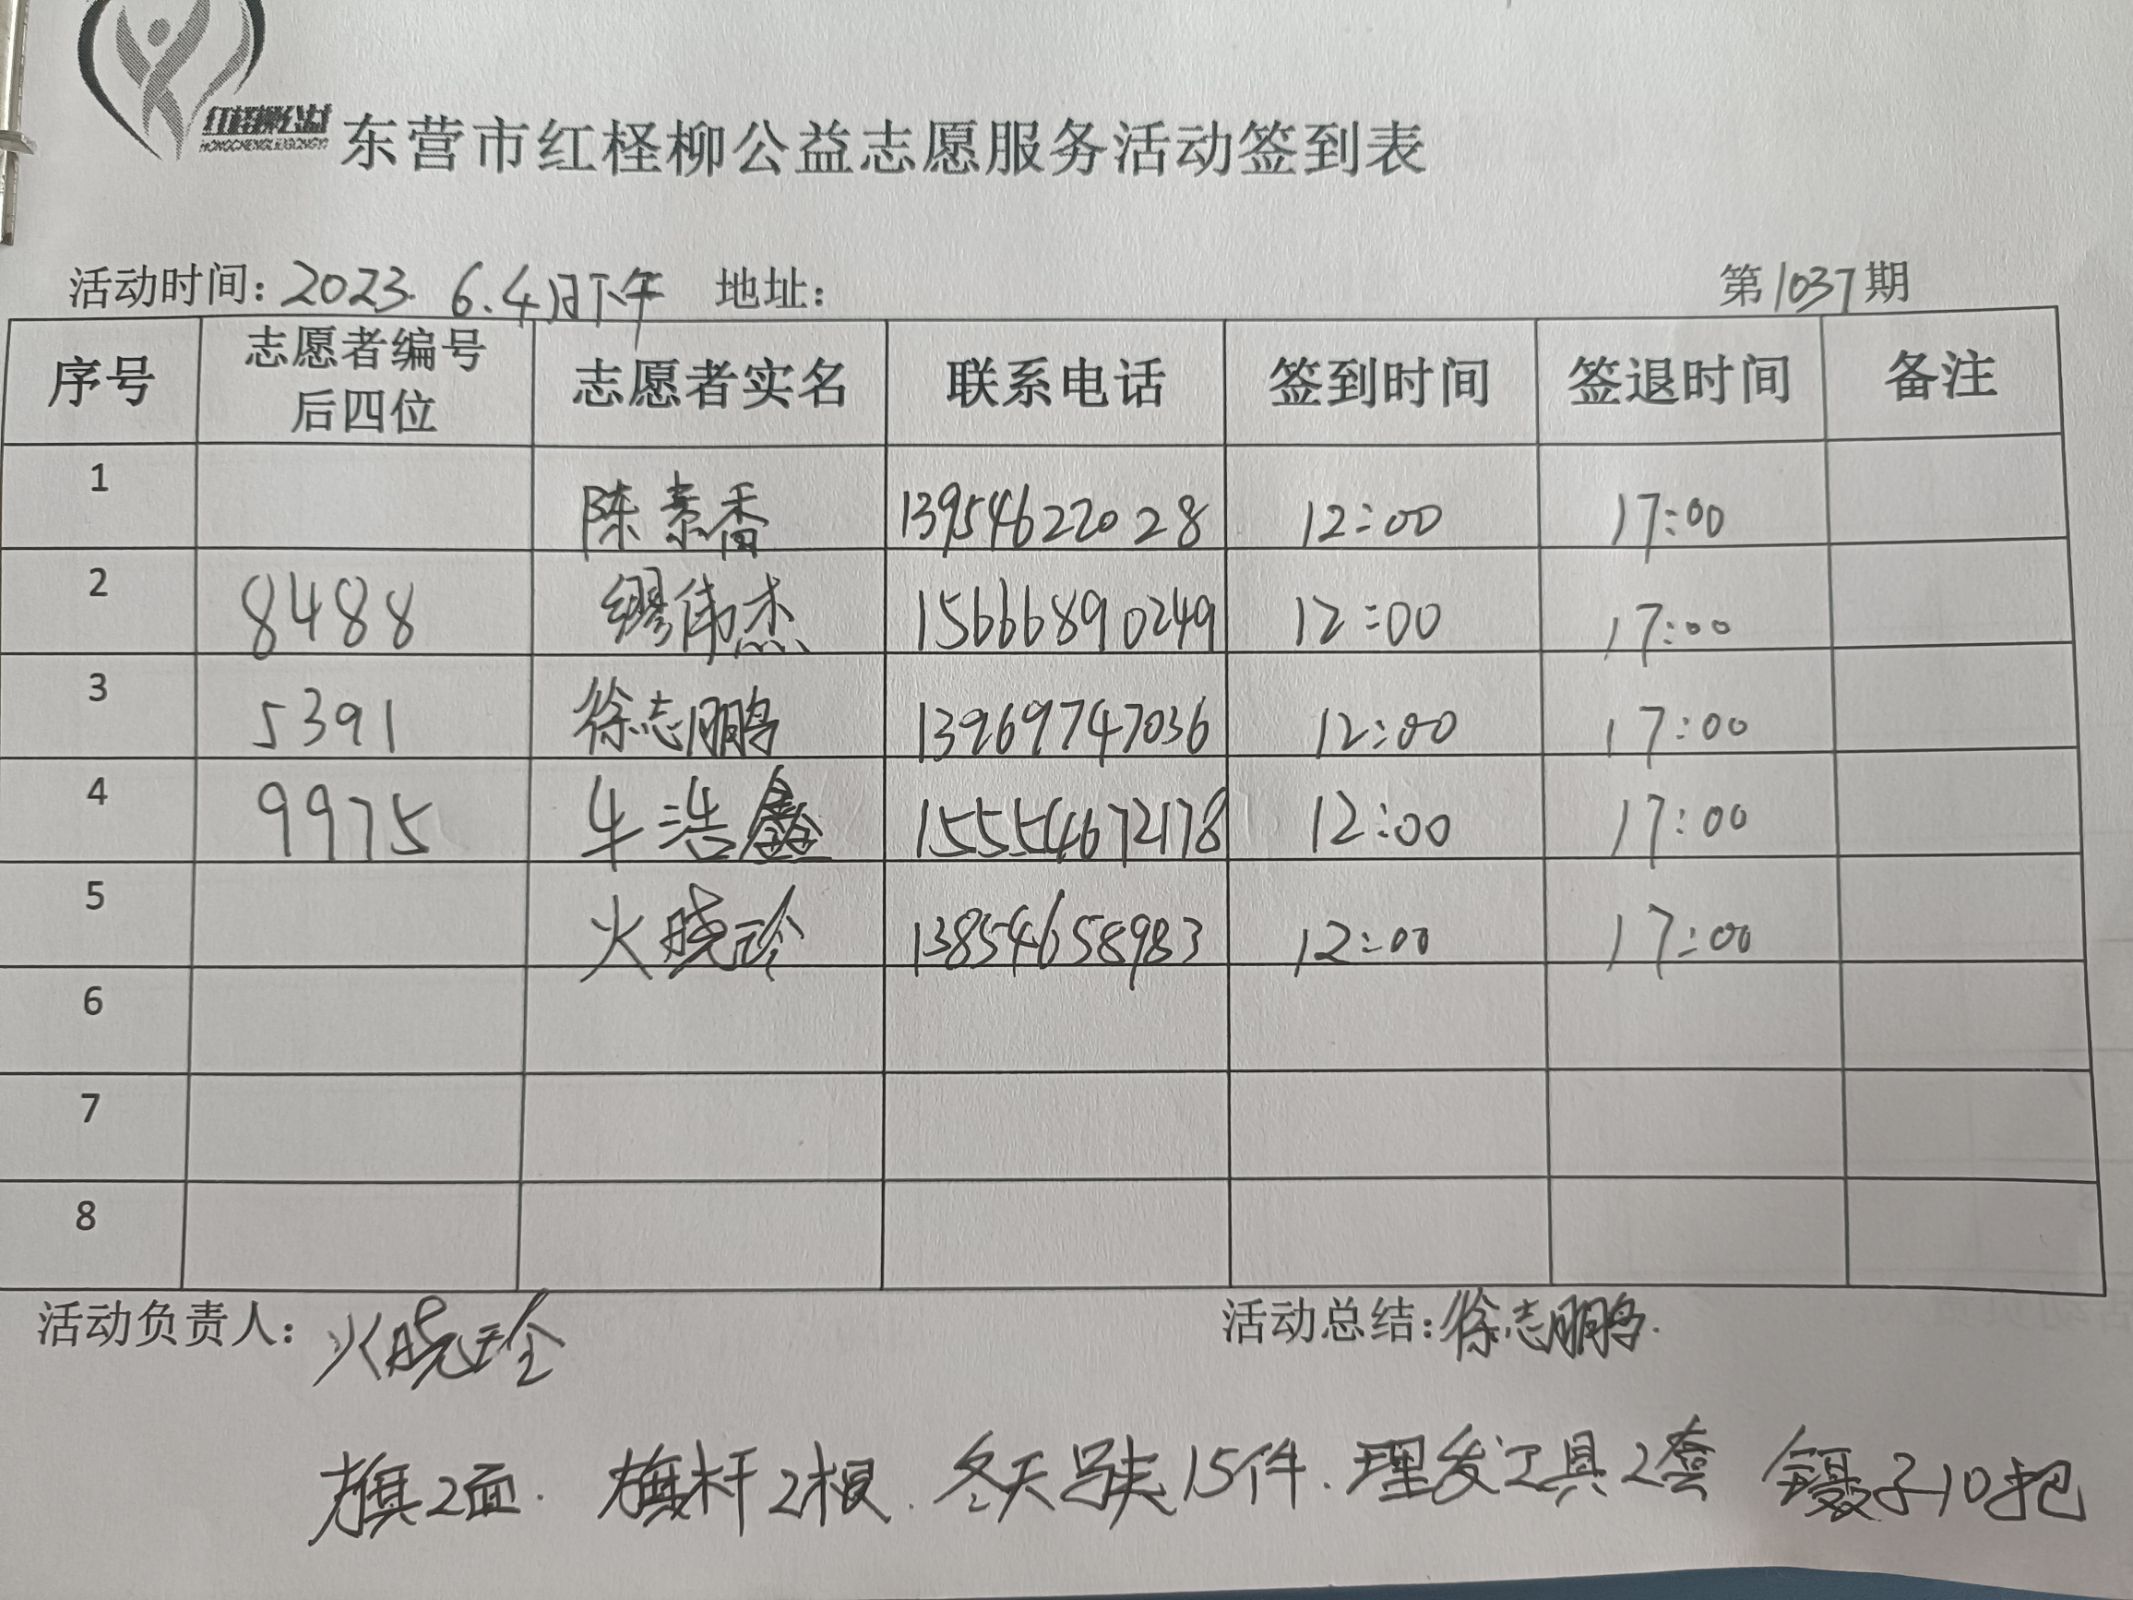 红柽柳公益
东营市红柽柳公益志愿服务活动签到表
活动时间：2023. 6.4日下午 地址： 第1037期
序号 志愿者编号后四位 志愿者实名 联系电话 签到时间 签退时间 备注
1 陈素香 13954622028 12:00 17:00
2 8488 缪伟杰 15666890249 12:00 17:00
3 5391 徐志鹏 13969747036 12:00 17:00
4 9975 牛浩鑫 15554672178 12:00 17:00
5 火晓玲 13854658983 12:00 17:00
6
7
8
活动负责人：火晓玲 活动总结：徐志鹏.
旗2面. 旗杆2根. 冬天马夹15件. 理发工具2套 镊子10把